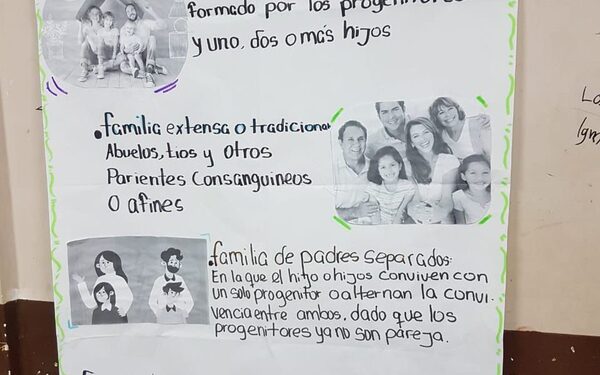 formado por los progenitores
y uno, dos o más hijos
.familia extensa o tradicional
Abuelos, tios y otros
Parientes Consanguineos
O afines
.familia de padres separados:
En la que el hijo o hijos conviven con
un solo progenitor o alternan la convi-
vencia entre ambos, dado que los
progenitores ya no son pareja.